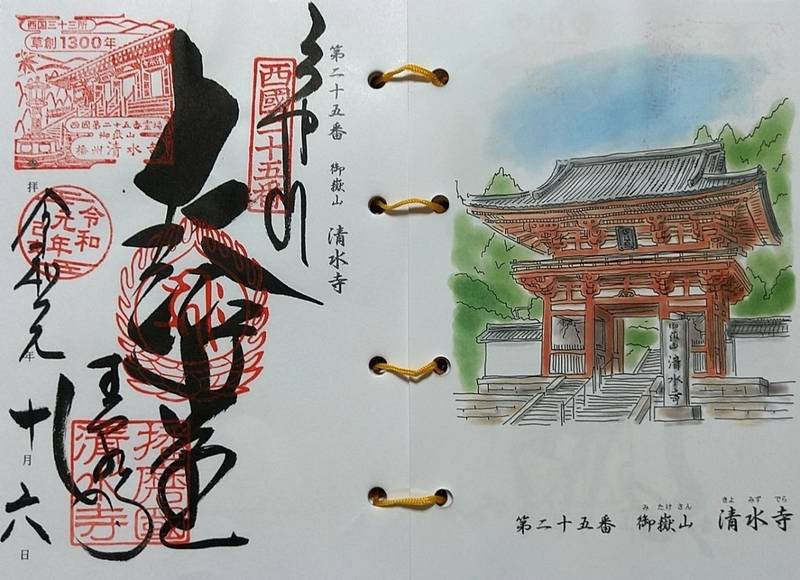 第二十五番 御嶽山 清水寺
西國二十五番
西国三十三所
草創1300年
西国第二十五番霊場
御嶽山
播州 清水寺
大講堂
播磨國
清水寺
令和
元年
奉拝
令和元年十月六日
御嶽山 清水寺
みたけさん きよみずでら
第二十五番 御嶽山 清水寺